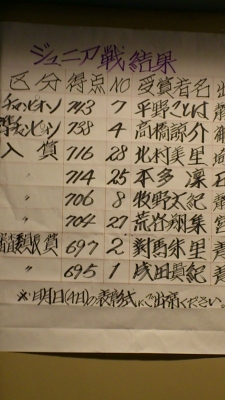 ジュニア戦結果
区分 得点 NO 受賞者名 出
チャンピオン 743 7 平野ことは 青
準チャンピオン 738 4 高橋諒介
入賞 716 28 北村美里
〃 714 25 本多凜
〃 706 8 牧野太紀 青
〃 704 27 荒谷翔集 宮
賞 697 2 對馬朱里 青
〃 695 1 成田真紀 青
※明日(4日)の表彰式にご出席ください。